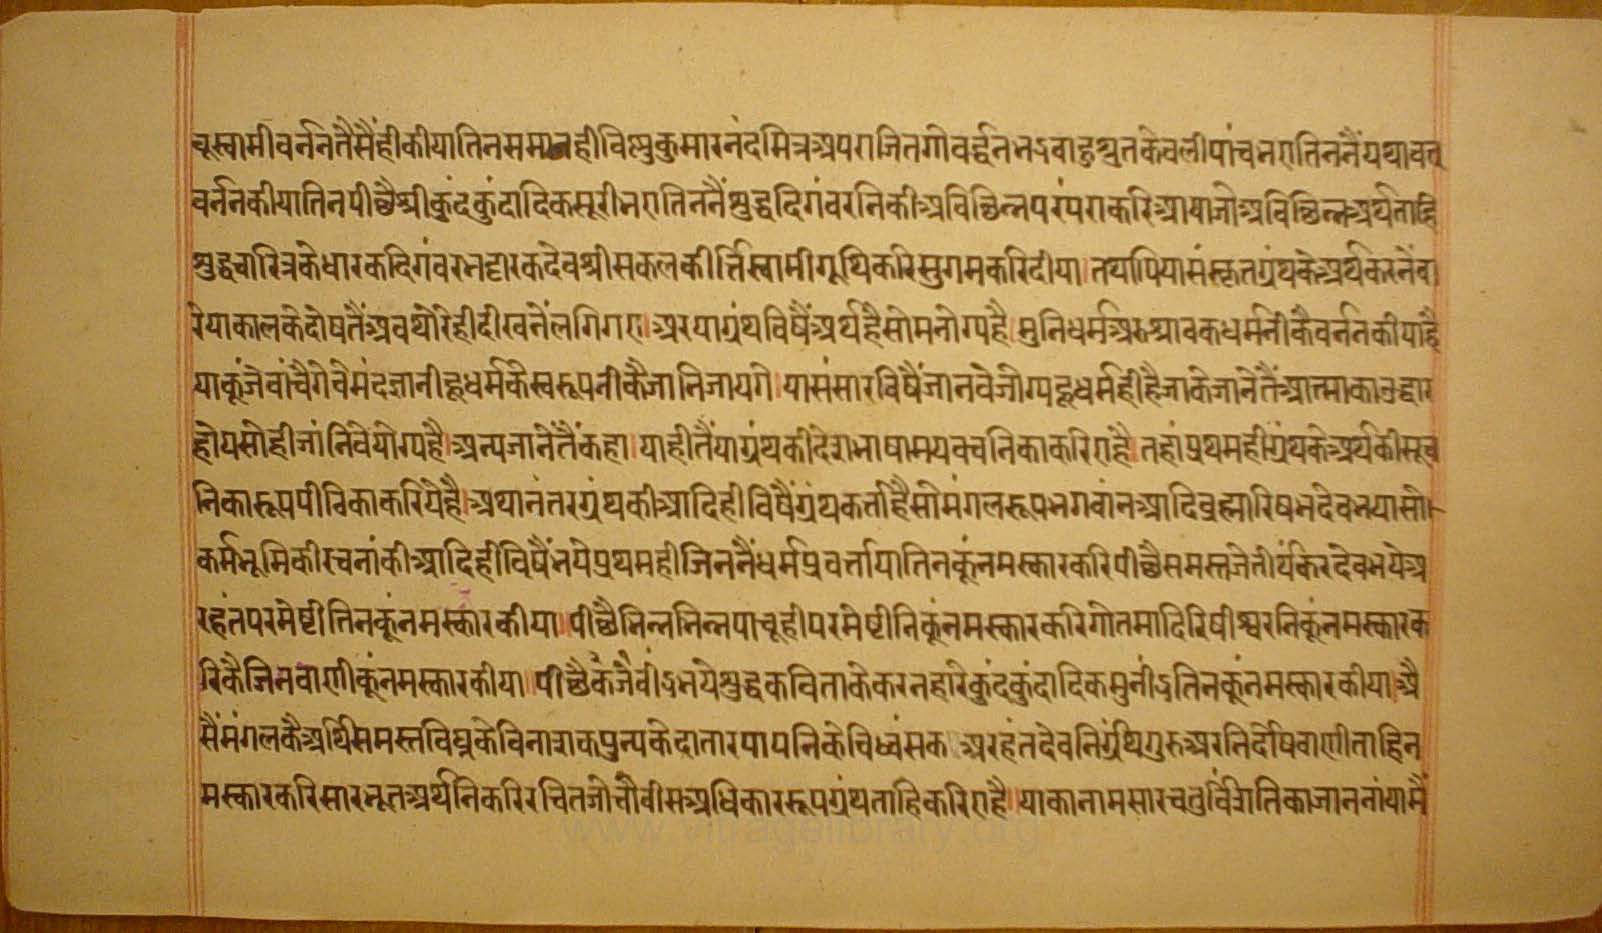 बूस्वामीवर्ननतैसैंहीकीयातिनसमानहीविष्णुकुमारनंदमित्रअपराजितगोवर्द्धनभद्रबाहुश्रुतकेवलीपांचभएतिननैंयथावत्
वर्ननकीयातिनपीछैश्रीकुंदकुंदादिकसूरीभएतिननैंशुद्धदिगंवरनिकीअविछिन्नपरंपराकरिआयाजोअविछिन्नअर्थताहि
शुद्धचारित्रकेधारकदिगंवरभट्टारकदेवश्रीसकलकीर्त्तिस्वामीगूंथिकरिसुगमकरिदीया।तथापियासंस्कृतग्रंथकेअर्थकरनेंवा
रेयाकालकेदोषतैंअवथोरेहीदीखनेंलगिगए।अरयाग्रंथविषैंअर्थहैसोमनोग्यहै।मुनिधर्मअरुश्रावकधर्मनीकैवर्ननकीयाहै
याकूंजेवांचैगेवेमंदज्ञानीहूधर्मकैस्वरूपनीकैजानिजायगे।यासंसारविषैंजानवेजोग्यहूधर्महीहैजाकेजानेतैंआत्माकाउद्धार
होयसोहीजांनिवेयोग्यहै।अन्यजानेंतैंकहा।याहीतैंयाग्रंथकीदेशभाषामयवचनिकाकरिएहै।तहांप्रथमहीग्रंथकेअर्थकीसूच
निकारूपपीठिकाकरियेहै।अथानंतरग्रंथकीआदिहीविषैंग्रंथकर्त्ताहैसोमंगलरूपभगवांनआदिब्रह्मारिषभदेवभयासो
कर्मभूमिकीरचनांकीआदिहीविषैंभयेप्रथमहीजिननैंधर्मप्रवर्त्तायातिनकूंनमस्कारकरिपीछैसमस्तजेतीर्थंकरदेवभयेअ
रहंतपरमेष्टीतिनकूंनमस्कारकीया।पीछैभिन्नभिन्नपांचूहीपरमेष्टीनिकूंनमस्कारकरिगोतमादिरिषीश्वरनिकूंनमस्कारक
रिकैजिनवाणीकूंनमस्कारकीया।पीछैभयेशुद्धकविताकेकरनहारेकुंदकुंदादिकमुनींद्रतिनकूंनमस्कारकीया।अै
सैंमंगलकैअर्थिसमस्तविघ्नकेविनाशकपुन्यकेदातारपापनिकेविध्वंसक।अरहंतदेवनिर्ग्रंथगुरुअरनिर्दोषवाणीताहिन
मस्कारकरिसारभूतअर्थनिकरिरचितजोचौवीसअधिकाररूपग्रंथताहिकरिएहै।याकानामसारचतुर्विंशतिकाजाननांयामैं
www.vitragelibrary.org